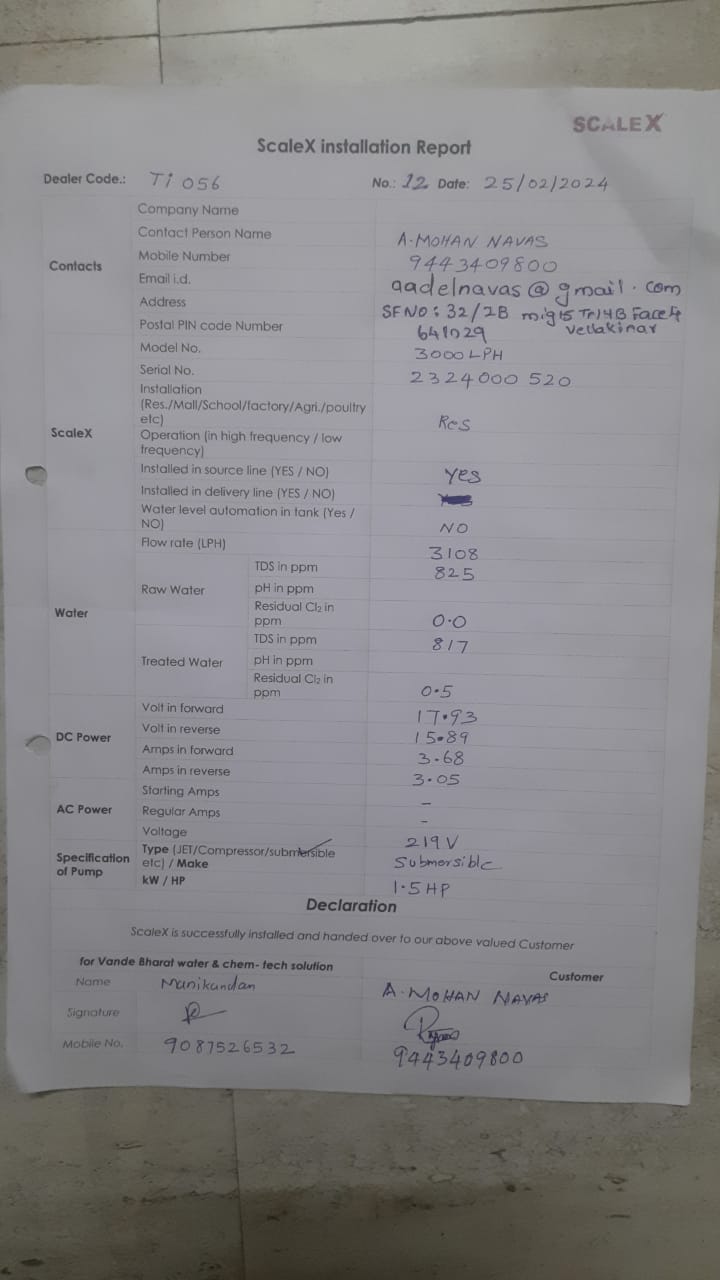 SCALEX
ScaleX installation Report
Dealer Code.: Ti 056 No.: 12 Date: 25/02/2024
Contacts
Company Name
Contact Person Name A.MOHAN NAVAS
Mobile Number 9443409800
Email i.d. aadelnavas@gmail.com
Address SFNO: 32/2B mig15 Tr14B Face 4
vellakinar
Postal PIN code Number 641029
ScaleX
Model No. 3000 LPH
Serial No. 2324000 520
Installation
(Res./Mall/School/factory/Agri./poultry
etc) Res
Operation (in high frequency / low
frequency)
Installed in source line (YES / NO) Yes
Installed in delivery line (YES / NO)
Water level automation in tank (Yes /
NO) NO
Water
Flow rate (LPH) 3108
Raw Water
TDS in ppm 825
pH in ppm
Residual Cl2 in
ppm 0.0
Treated Water
TDS in ppm 817
pH in ppm
Residual Cl2 in
ppm 0.5
DC Power
Volt in forward 17.93
Volt in reverse 15.89
Amps in forward 3.68
Amps in reverse 3.05
AC Power
Starting Amps -
Regular Amps -
Voltage 219 V
Specification
of Pump
Type (JET/Compressor/submersible
etc) / Make Submersible
kW / HP 1.5 HP
Declaration
ScaleX is successfully installed and handed over to our above valued Customer
for Vande Bharat water & chem- tech solution Customer
Name Manikandan A.MOHAN NAVAS
Signature
Mobile No. 9087526532 9443409800